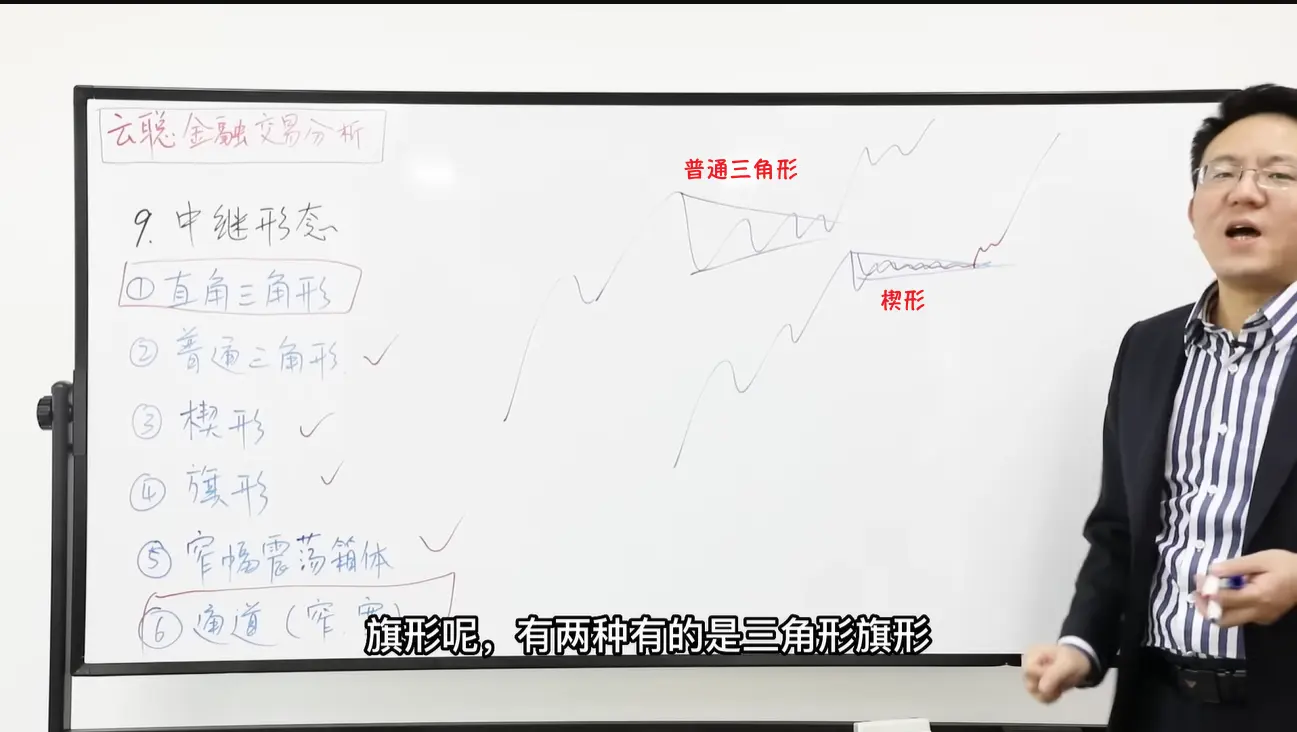 云聪金融交易分析
9. 中继形态
① 直角三角形
② 普通三角形
③ 楔形
④ 旗形
⑤ 窄幅震荡箱体
⑥ 通道（窄.宽）
普通三角形
楔形
旗形呢，有两种有的是三角形旗形